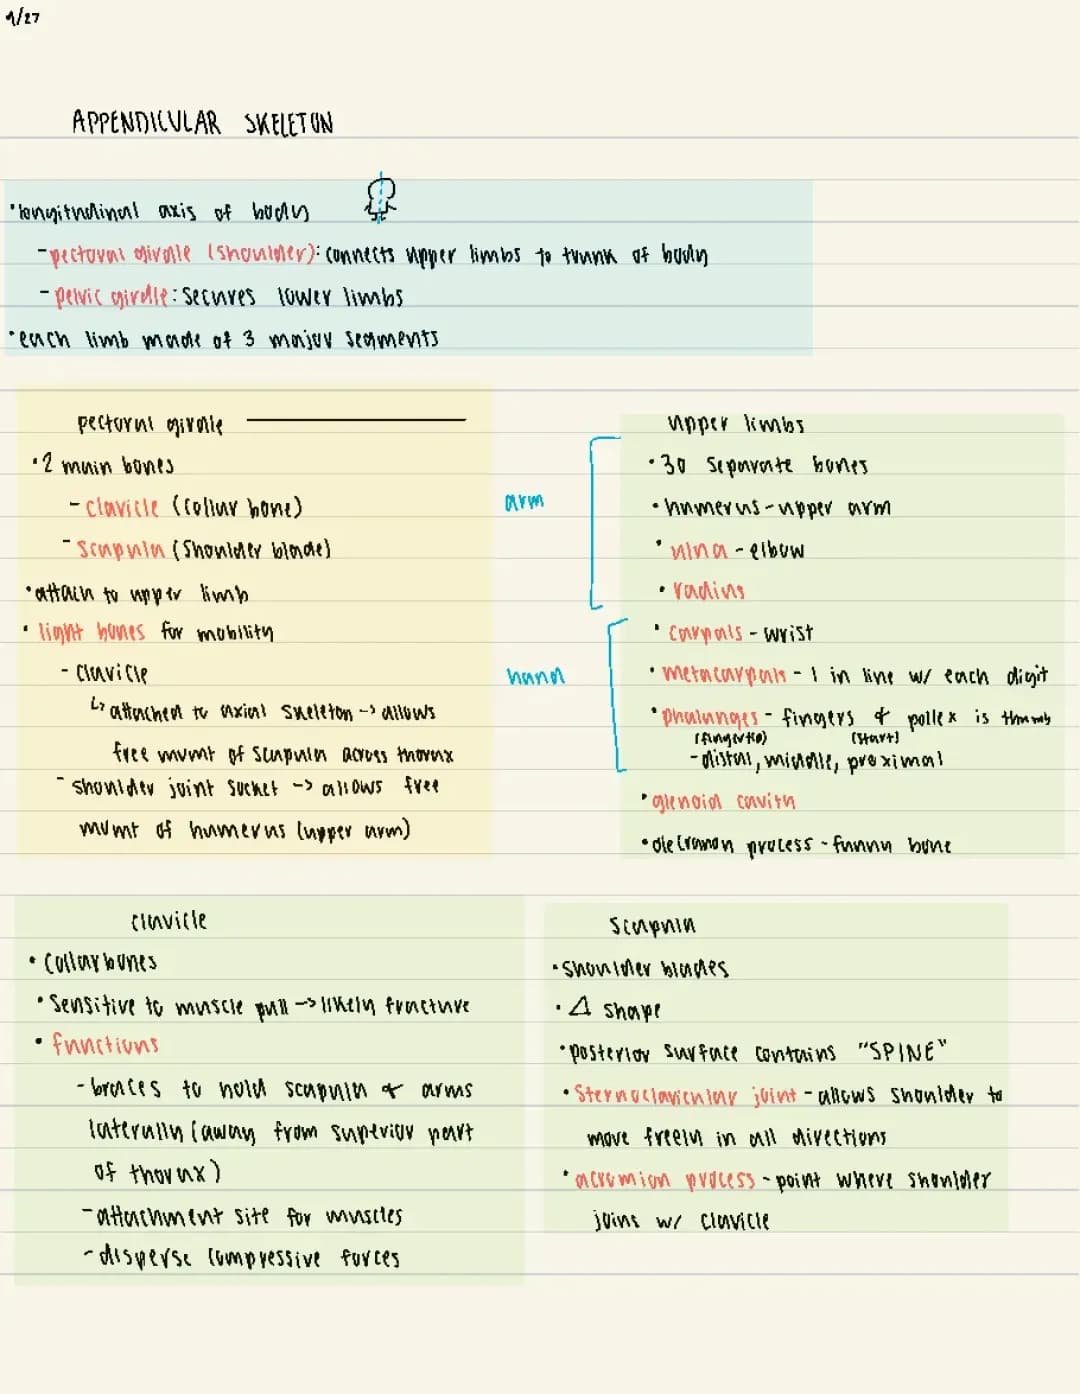 9/27
APPENDICULAR SKELETON
•longitudinal axis of body
-pectoral girdle (shoulder): connects upper limbs to trunk of body
-pelvic girdle: secures lower limbs
•each limb made of 3 major segments
pectoral girdle
•2 main bones
-clavicle (collar bone)
-scapula (shoulder blade)
•attach to upper limb
•light bones for mobility
-clavicle
↳attached to axial skeleton -> allows
free mvmt of scapula across thorax
-shoulder joint socket -> allows free
mvmt of humerus (upper arm)
arm
hand
upper limbs
•30 separate bones
•humerus - upper arm
•ulna - elbow
•radius
•carpals - wrist
•metacarpals - 1 in line w/ each digit
•phalanges - fingers & pollex is thumb
(fingertip) (start)
-distal, middle, proximal
•glenoid cavity
•olecranon process - funny bone
clavicle
•collarbones
•sensitive to muscle pull -> likely fracture
•functions
-braces to hold scapula & arms
laterally (away from superior part
of thorax)
-attachment site for muscles
-disperse compressive forces
scapula
•shoulder blades
•△ shape
•posterior surface contains "SPINE"
•sternoclavicular joint - allows shoulder to
move freely in all directions
•acromion process - point where shoulder
joins w/ clavicle